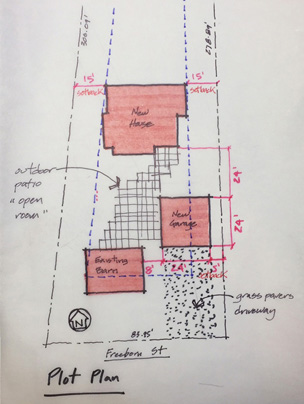 300.09'
278.89'
15'
15'
setback
setback
New
House
outdoor
patio
"open
room"
24'
New
Garage
24'
Existing
Barn
8'
24'
setback
grass pavers
driveway
N
83.95'
Freeborn St
Plot Plan